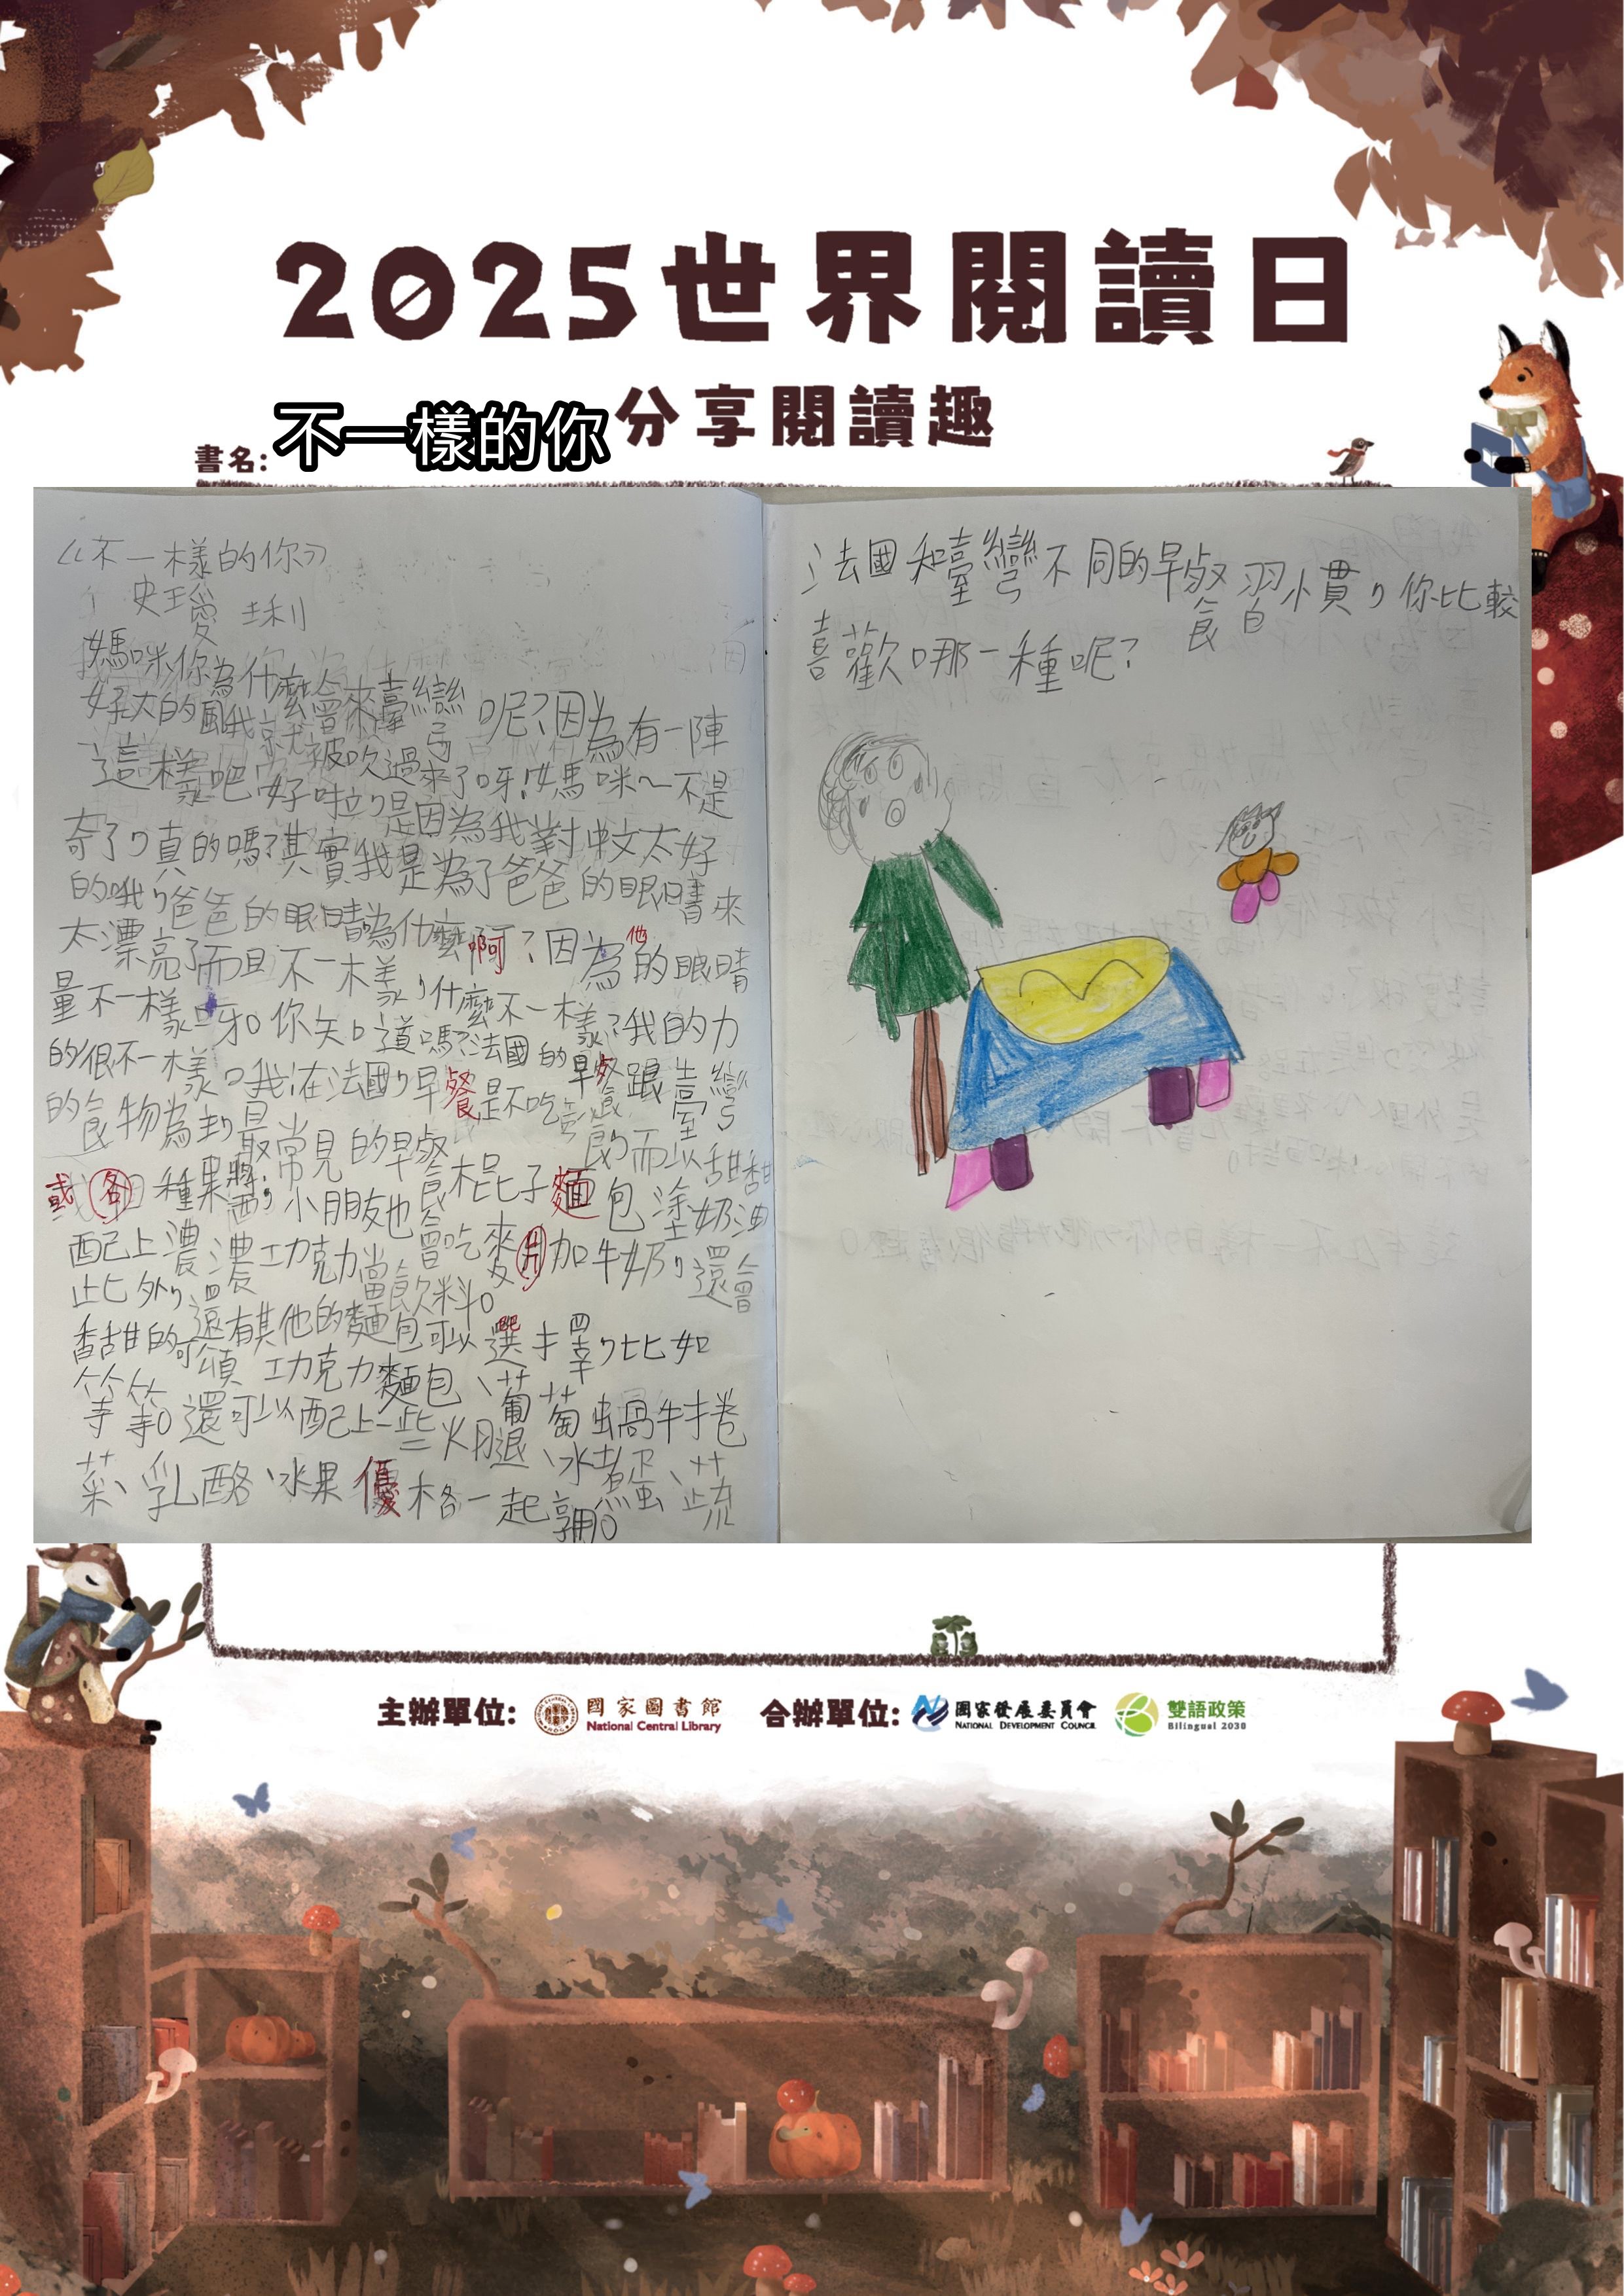 2025世界閱讀日
分享閱讀趣
書名:不一樣的你
《不一樣的你》
史瑷琍
媽咪你為什麼會來臺灣呢?因為有一陣
好大的風我就被吹過來了呀!媽咪~不是
這樣吧好啦,是因為我對中文太好
奇了,真的嗎?其實我是為了爸爸的眼睛來
的哦,爸爸的眼睛為什麼啊?因為他的眼睛
太漂亮了而且不一樣,什麼不一樣?我的力
量不一樣呀。你知道嗎?法國的早餐跟臺灣
的很不一樣。我在法國,早餐是不吃
的食物為主,最常見的早餐
或各種果醬,小朋友也會吃麥片加牛奶,還會
配上濃濃巧克力當飲料。
此外,還有其他的麵包可以選擇,比如
香甜的可頌巧克力麵包、葡萄蝸牛捲
等等。還可以配上一些火腿、水煮蛋、蔬
菜、乳酪、水果優格一起享用。
法國和臺灣不同的早餐習慣,你比較
喜歡哪一種呢?
主辦單位:
國家圖書館
National Central Library
合辦單位:
國家發展委員會
NATIONAL DEVELOPMENT COUNCIL
雙語政策
Bilingual 2030